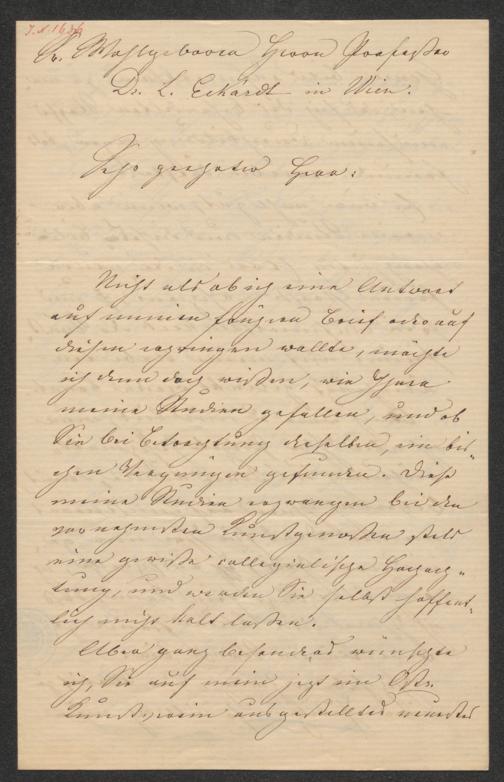 J.N. 1636
Sr. Wohlgeboren Herrn Professor
Dr. L. Eckardt in Wien.
Sehr geehrter Herr:
Nicht als ob ich eine Antwort
auf meinen frühern Brief oder auf
diesen erzwingen wollte, möchte
ich denn doch wissen, wie Ihnen
meine Studien gefallen, und ob
Sie bei Betrachtung derselben, ein bis„
chen Vergnügen gefunden. Diese
meine Studien erzwangen bei den
vornehmsten Kunstgenossen stets
eine gewisse collegialische Hochach„
tung, und werden Sie selbst hoffent„
lich nicht kalt lassen.
Aber ganz besonders wünschte
ich, Sie auf mein jetzt im Östr.
Kunstverein ausgestelltes neuestes